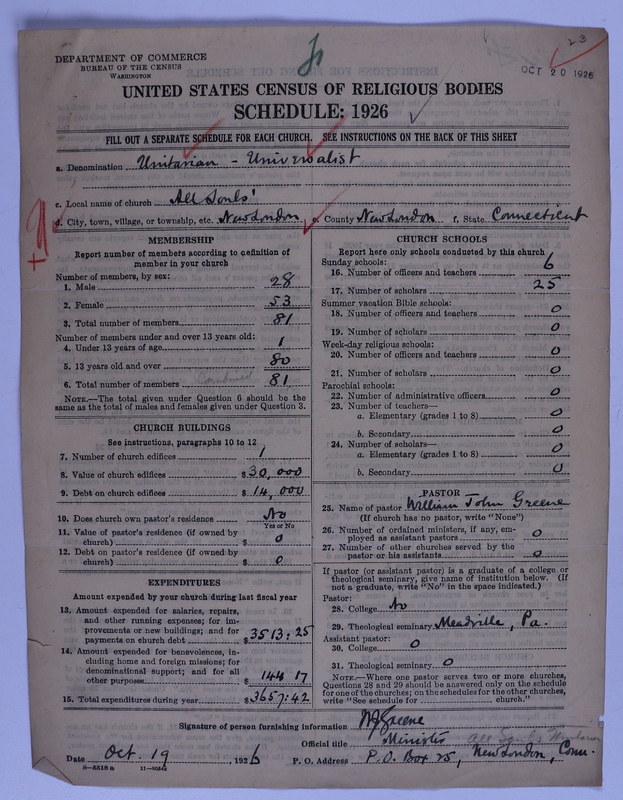 23
DEPARTMENT OF COMMERCE
BUREAU OF THE CENSUS
WASHINGTON
OCT 20 1926
UNITED STATES CENSUS OF RELIGIOUS BODIES
SCHEDULE: 1926
FILL OUT A SEPARATE SCHEDULE FOR EACH CHURCH. SEE INSTRUCTIONS ON THE BACK OF THIS SHEET
a. Denomination Unitarian - Universalist
c. Local name of church All Souls'
d. City, town, village, or township, etc. New London e. County New London f. State Connecticut
MEMBERSHIP
Report number of members according to definition of
member in your church
Number of members, by sex:
1. Male 28
2. Female 53
3. Total number of members 81
Number of members under and over 13 years old:
4. Under 13 years of age 1
5. 13 years old and over 80
6. Total number of members Combined 81
NOTE.—The total given under Question 6 should be
same as the total of males and females given under Question 3.
CHURCH BUILDINGS
See instructions, paragraphs 10 to 12
7. Number of church edifices 1
8. Value of church edifices $30,000
9. Debt on church edifices $14,000
10. Does church own pastor's residence No
Yes or No
11. Value of pastor's residence (if owned by
church) $ 0
12. Debt on pastor's residence (if owned by
church) $ 0
EXPENDITURES
Amount expended by your church during last fiscal year
13. Amount expended for salaries, repairs,
and other running expenses; for im-
provements or new buildings; and for
payments on church debt $3513:25
14. Amount expended for benevolences, in-
cluding home and foreign missions; for
denominational support; and for all
other purposes $144 17
15. Total expenditures during year $3657:42
CHURCH SCHOOLS
Report here only schools conducted by this church
Sunday schools:
16. Number of officers and teachers 6
17. Number of scholars 25
Summer vacation Bible schools:
18. Number of officers and teachers 0
19. Number of scholars 0
Week-day religious schools:
20. Number of officers and teachers 0
21. Number of scholars 0
Parochial schools:
22. Number of administrative officers 0
23. Number of teachers—
a. Elementary (grades 1 to 8) 0
b. Secondary 0
24. Number of scholars—
a. Elementary (grades 1 to 8) 0
b. Secondary 0
PASTOR
25. Name of pastor William John Greene
(If church has no pastor, write "None")
26. Number of ordained ministers, if any, em-
ployed as assistant pastors 0
27. Number of other churches served by the
pastor or his assistants 0
If pastor (or assistant pastor) is a graduate of a college or
theological seminary, give name of institution below. (If
not a graduate, write "No" in the space indicated.)
Pastor:
28. College No
29. Theological seminary Meadville, Pa.
Assistant pastor:
30. College 0
31. Theological seminary 0
NOTE.—Where one pastor serves two or more churches,
Questions 28 and 29 should be answered only on the schedule
for one of the churches; on the schedules for the other churches,
write "See schedule for church."
Signature of person furnishing information WJGreene
Official title Minister All Souls Unitarian
Date Oct. 19, 1926 P. O. Address P.O. Box 25, New London, Conn.
8—5518 a